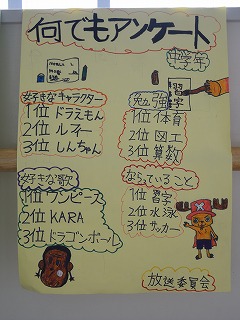 何でもアンケート
中学年
習字
好きなキャラクター
1位 ドラえもん
2位 ルフィー
3位 しんちゃん
勉強
1位 体育
2位 図工
3位 算数
好きな歌
1位 ワンピース
2位 KARA
3位 ドラゴンボール
ならっていること
1位 習字
2位 水泳
3位 サッカー
放送委員会